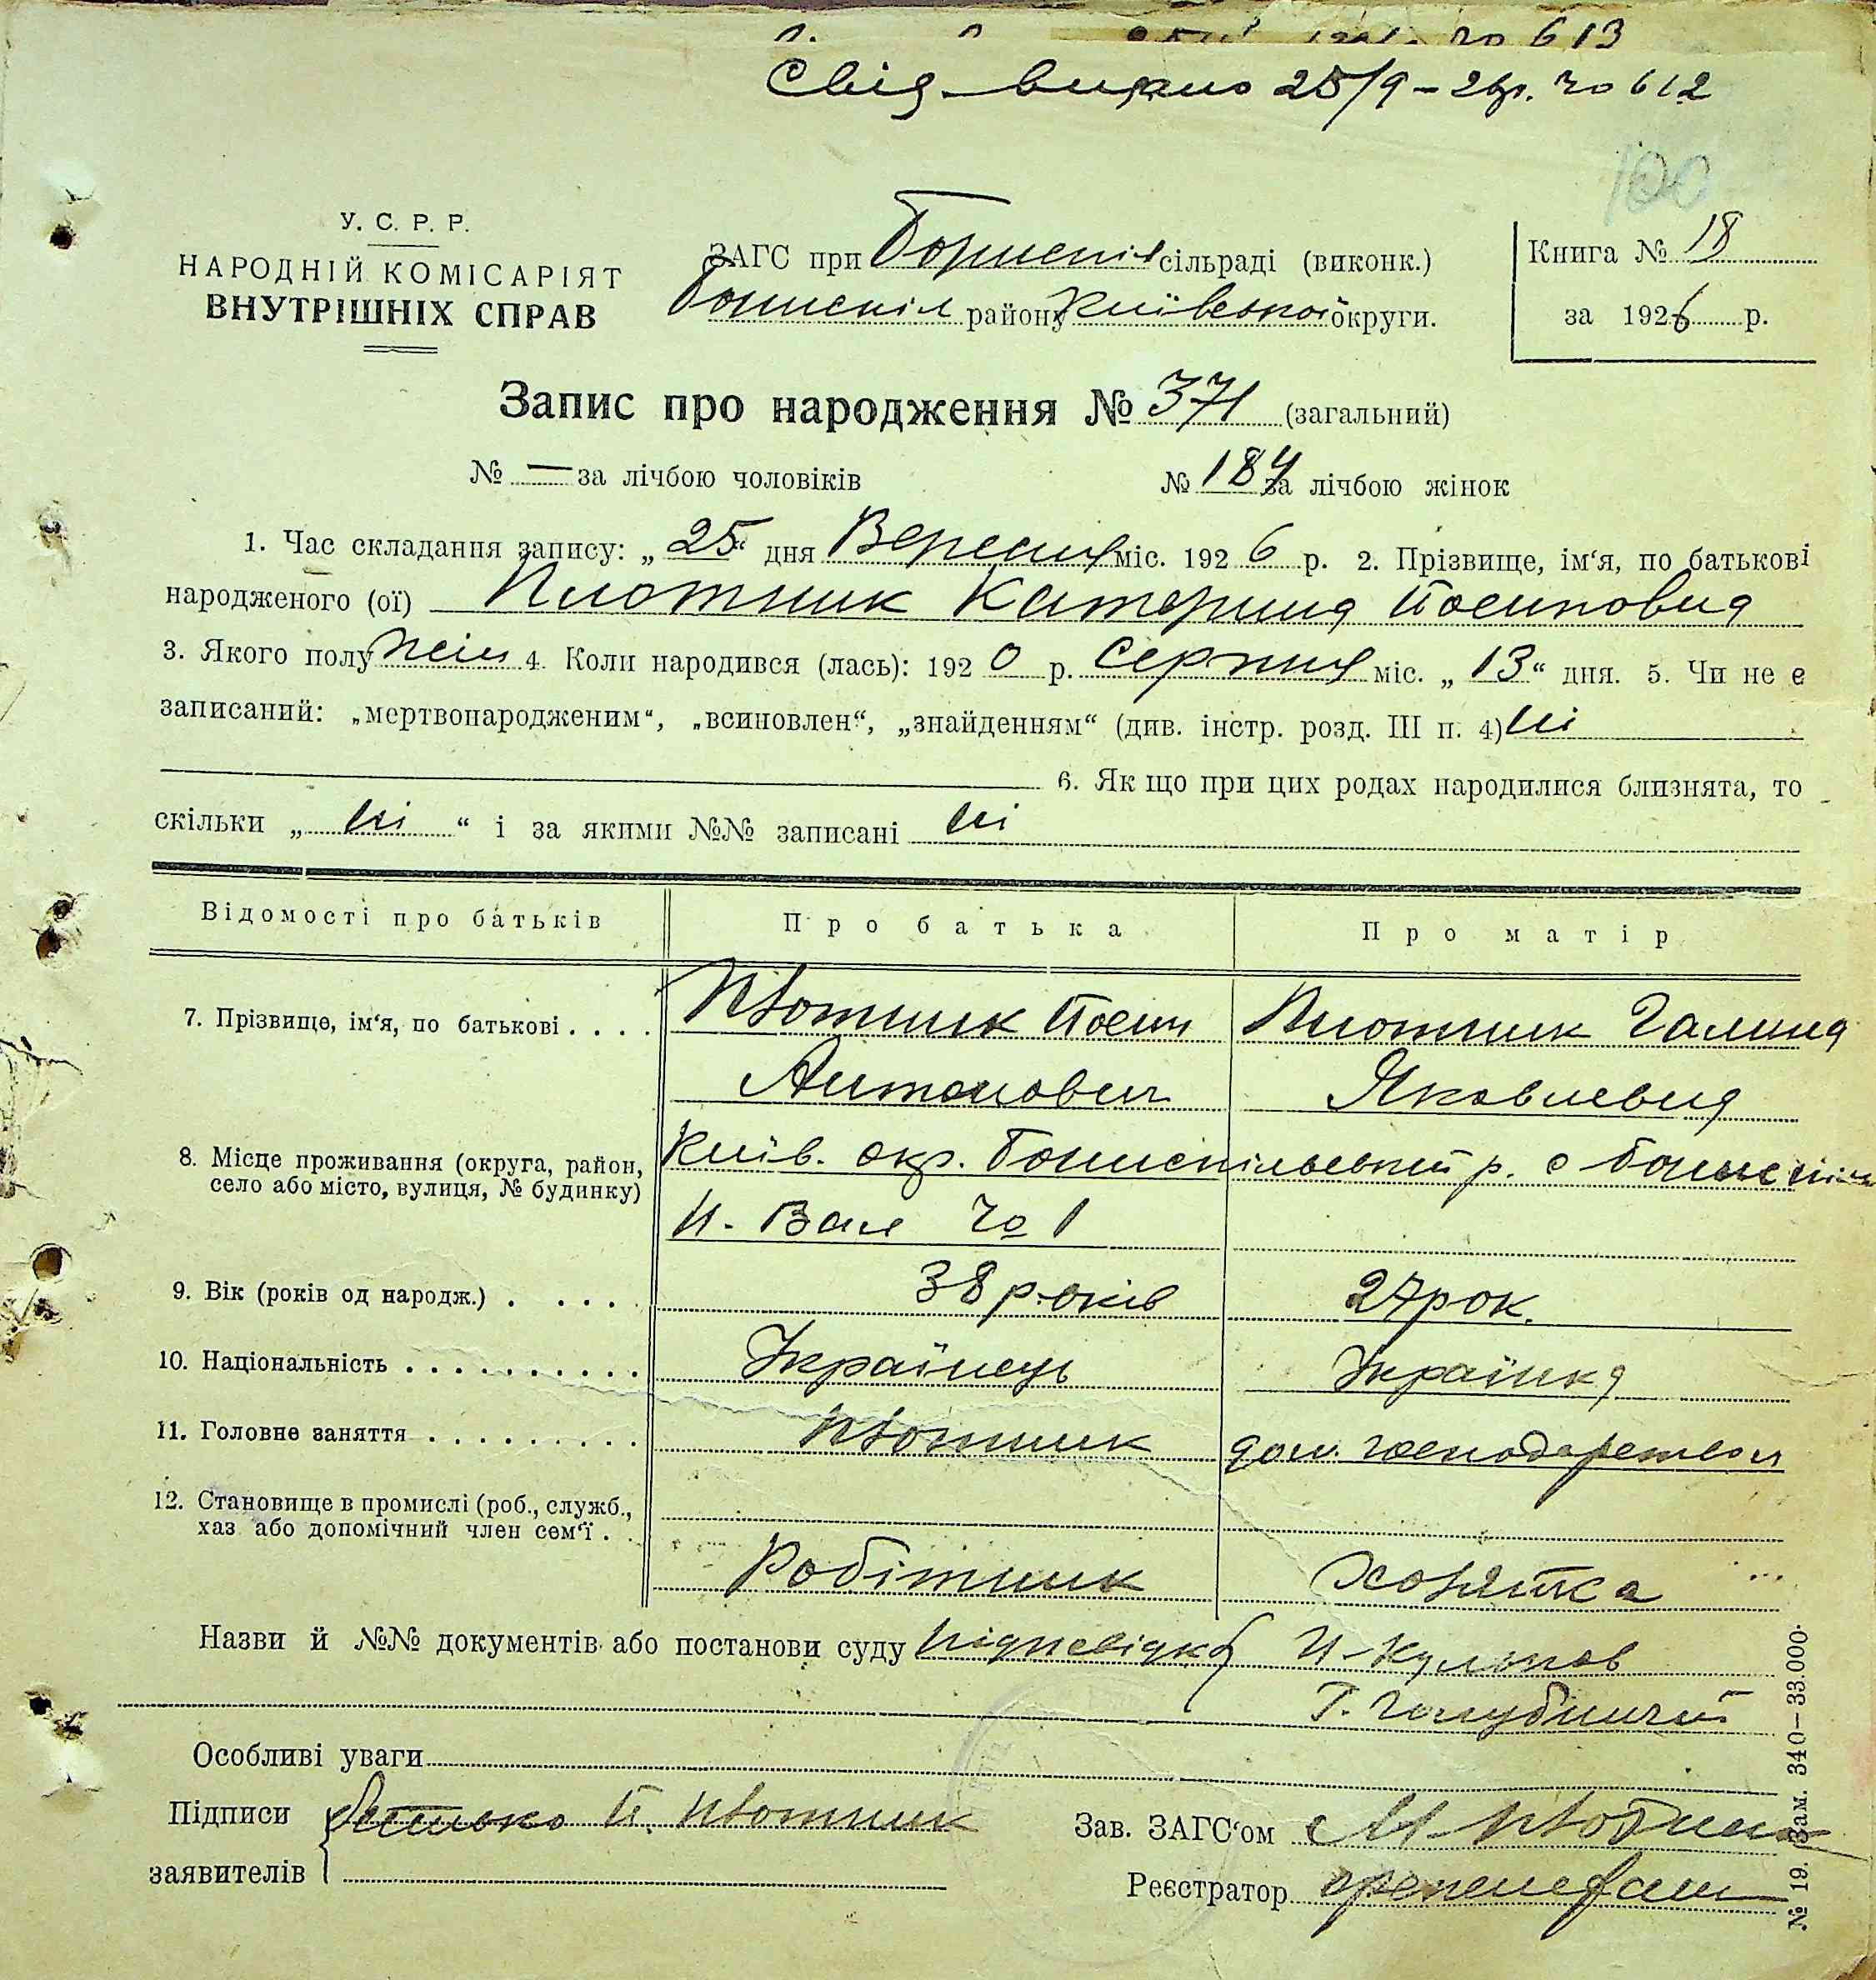 № 613
Свід. видано 25/9-26р. № 612
100
У. С. Р. Р.
НАРОДНІЙ КОМІСАРІЯТ
ВНУТРІШНІХ СПРАВ
ЗАГС при Бориспіл сільраді (виконк.)
Бориспіл району Київської округи.
Книга № 18
за 1926 р.
Запис про народження № 371 (загальний)
№ — за лічбою чоловіків № 184 за лічбою жінок
1. Час складання запису: „25“ дня Вересня міс. 1926 р. 2. Прізвище, ім‘я, по батькові
народженого (ої) Плотник Катерина Йосиповна
3. Якого полу жін 4. Коли народився (лась): 1920 р. Серпня міс. „13“ дня. 5. Чи не є
записаний: „мертвонародженим“, „всиновлен“, „знайденням“ (див. інстр. розд. III п. 4) ні
6. Як що при цих родах народилися близнята, то
скільки „ні“ і за якими №№ записані ні
Відомості про батьків Про батька Про матір
7. Прізвище, ім‘я, по батькові . . . . Плотник Йосип Плотник Галина
Антонович Яковлевна
8. Місце проживання (округа, район, Київ. окр. Бориспільський р. с Бориспіль
село або місто, вулиця, № будинку)
И. Вал № 1
9. Вік (років од народж.) . . . . . 38 років 27 рок.
10. Національність . . . . . . . . . . Українець Українка
11. Головне заняття . . . . . . . . . Плотник дом. господарством
12. Становище в промислі (роб., служб.,
хаз або допомічний член сем‘ї . .
Робітник Хозяйка
Назви й №№ документів або постанови суду
Г. Голубничий
Особливі уваги
Підписи батько Й. Плотник
заявителів
Зав. ЗАГС‘ом
Реєстратор
№ 19. Зам. 340—33.000.